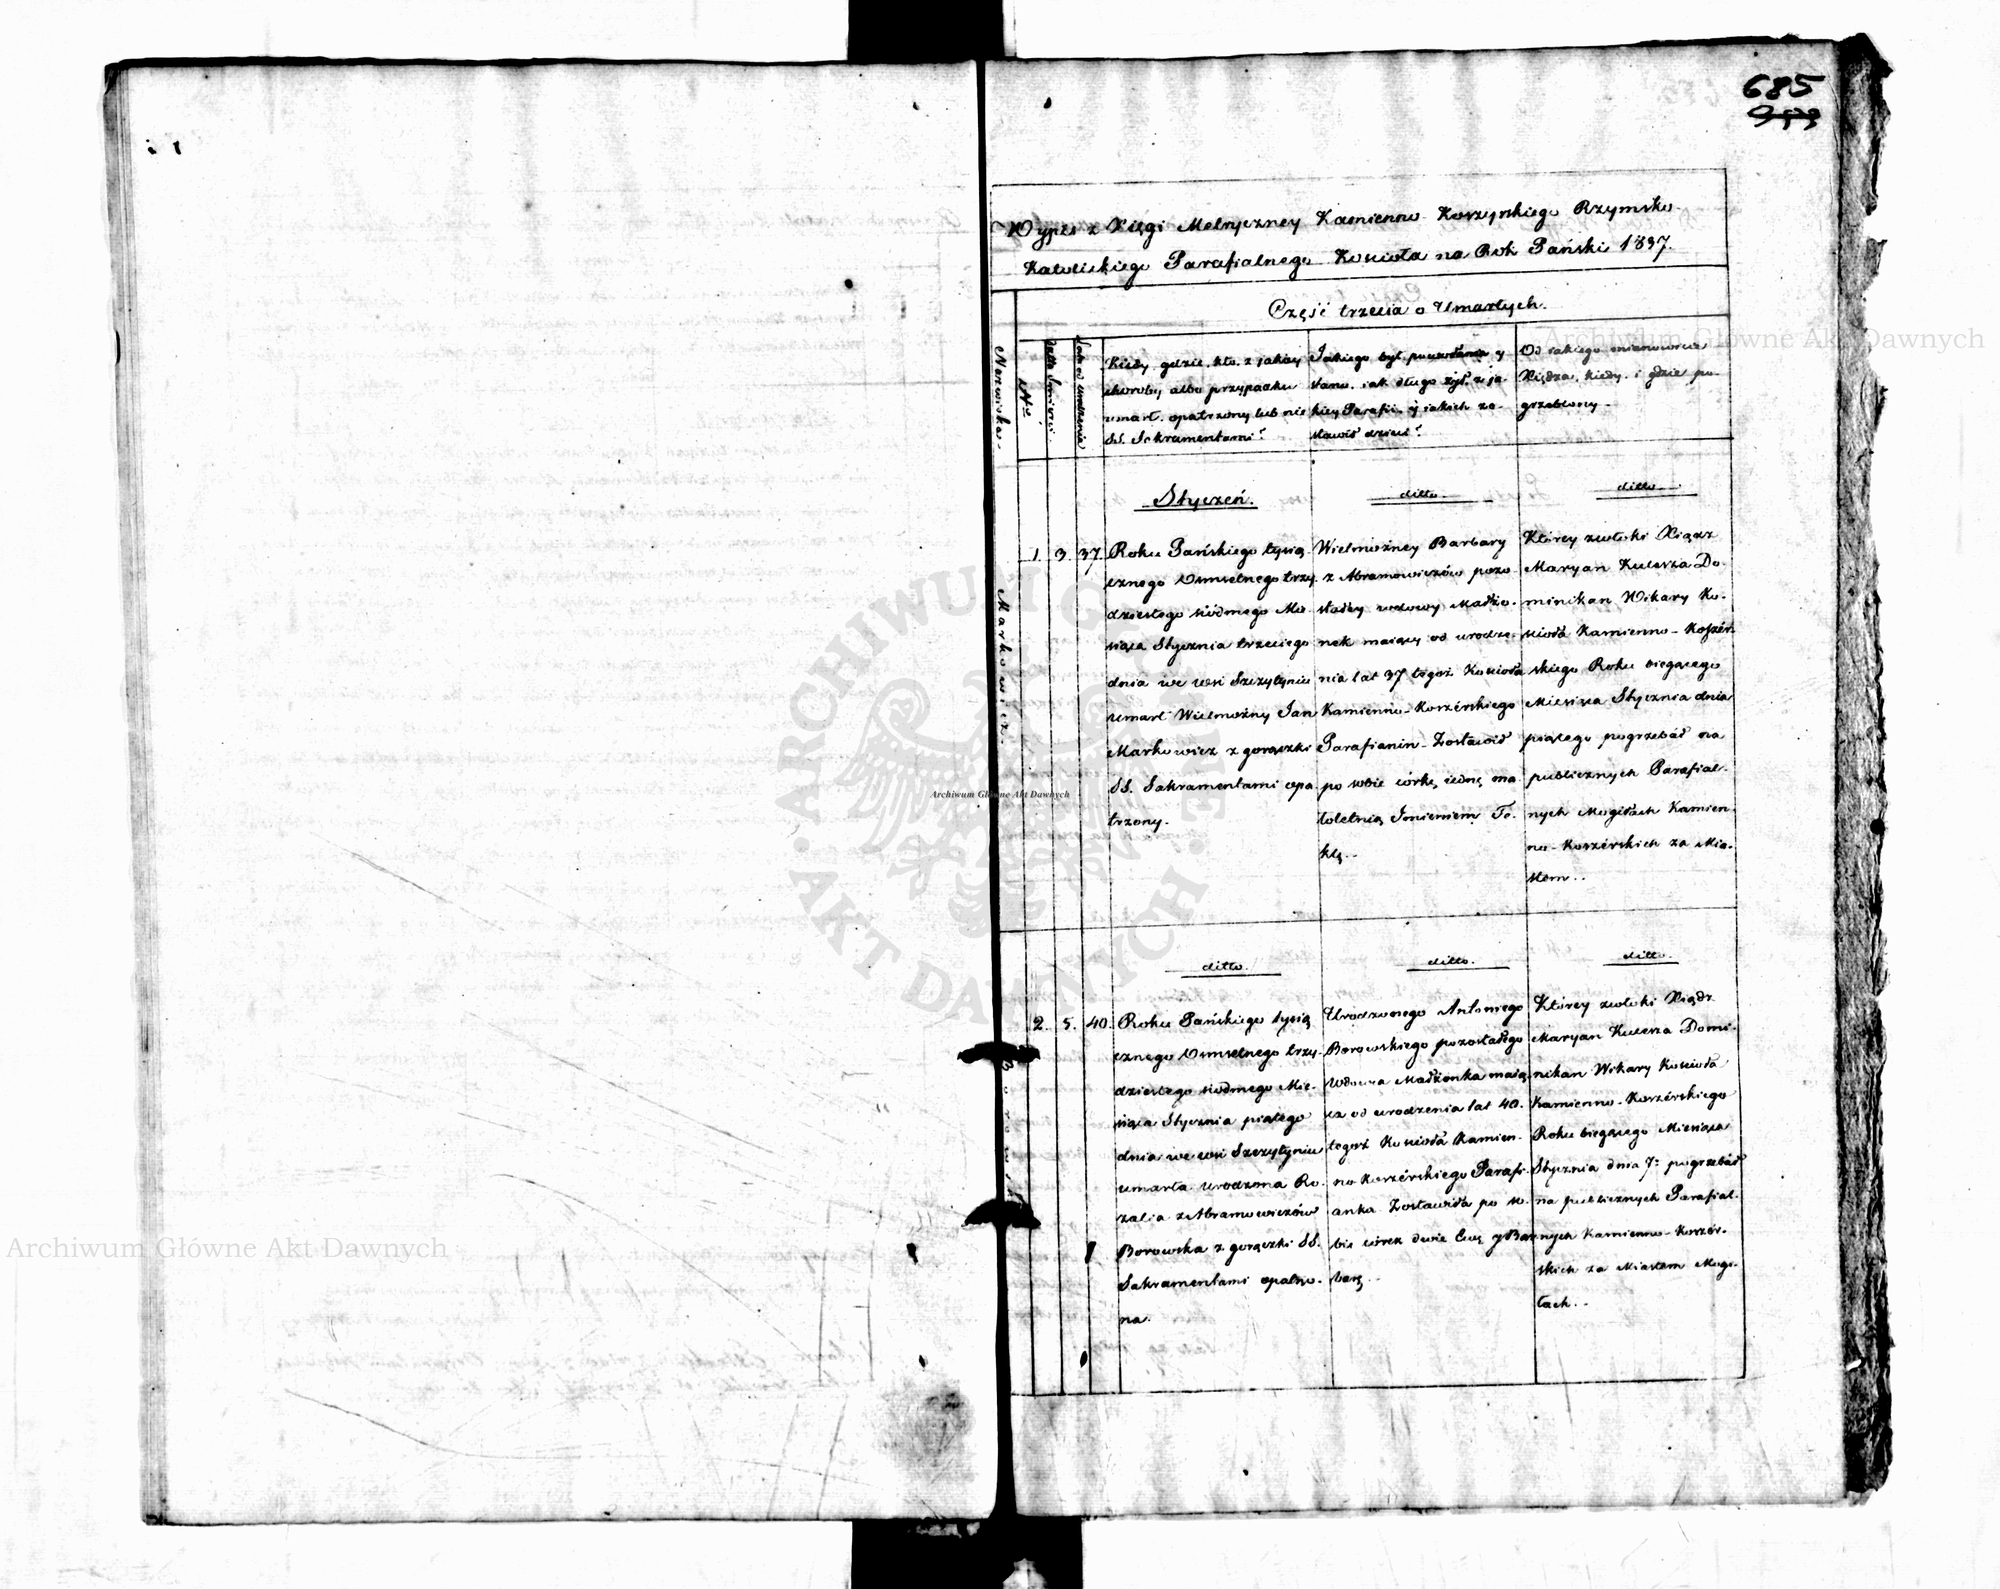 685
Wypis z Xięgi Metryczney Kamienno-Koszyrskiego Rzymsko-
Katolickiego Parafialnego Kościoła na Rok Pański 1837.
Część trzecia o Umarłych.
Nazwiska.
Nro
Datta śmierci.
Lata od urodzenia
Kiedy, gdzie, kto, z jakiey
choroby albo przypadku
umarł, opatrzony lub nie
SS. Sakramentami?
Jakiego był powołania y
stanu, iak długo żył, z ja-
kiey Parafii, y iakich zo-
stawił dzieci?
Od iakiego mianowicie
Xiędza, kiedy, i gdzie po-
grzebiony.
Styczeń.
ditto.
ditto.
Markowicz.
1. 3. 37.
Roku Pańskiego tysią-
cznego Osmsetnego trzy-
dziestego siódmego Mie-
siąca Stycznia trzeciego
dnia we wsi Szczytyniu
umarł Wielmożny Jan
Markowicz z gorączki
SS. Sakramentami opa-
trzony.
Wielmożney Barbary
z Abramowiczów pozo-
stałey wdowy Małżo-
nek maiący od urodze-
nia lat 37 tegoż Kościoła
Kamienno-Koszérskiego
Parafianin. Zostawił
po sobie córkę, iedną ma-
łoletnią Imieniem Te-
klę.
Którey zwłoki Xiądz
Maryan Kulesza Do-
minikan Wikary Ko-
ścioła Kamienno-Koszér-
skiego Roku bieżącego
Miesiąca Stycznia dnia
piątego pogrzebał na
publicznych Parafial-
nych Mogiłach Kamien-
no-Koszérskich za Mia-
stem.
ditto.
ditto.
ditto.
Borowska
2. 5. 40.
Roku Pańskiego tysią-
cznego Osmsetnego trzy-
dziestego siódmego Mie-
siąca Stycznia piątego
dnia we wsi Szczytyniu
umarła urodzona Ro-
zalia z Abramowiczów
Borowska z gorączki SS.
Sakramentami opatrzo-
na.
Urodzonego Antoniego
Borowskiego pozostałego
Wdowca Małżonka maią-
ca od urodzenia lat 40.
tegoż Kościoła Kamien-
no Koszérskiego Parafi-
anka. Zostawiła po so-
bie córek dwie Ewę y Bar-
barę.
Którey zwłoki Xiądz
Maryan Kulesza Domi-
nikan Wikary Kościoła
Kamienno-Koszérskiego
Roku bieżącego Miesiąca
Stycznia dnia 7. pogrzebał
na publicznych Parafial-
nych Kamienno-Koszér-
skich za Miastem Mogi-
łach.
ARCHIWUM GŁÓWNE AKT DAWNYCH
Archiwum Główne Akt Dawnych
Archiwum Główne Akt Dawnych
Archiwum Główne Akt Dawnych